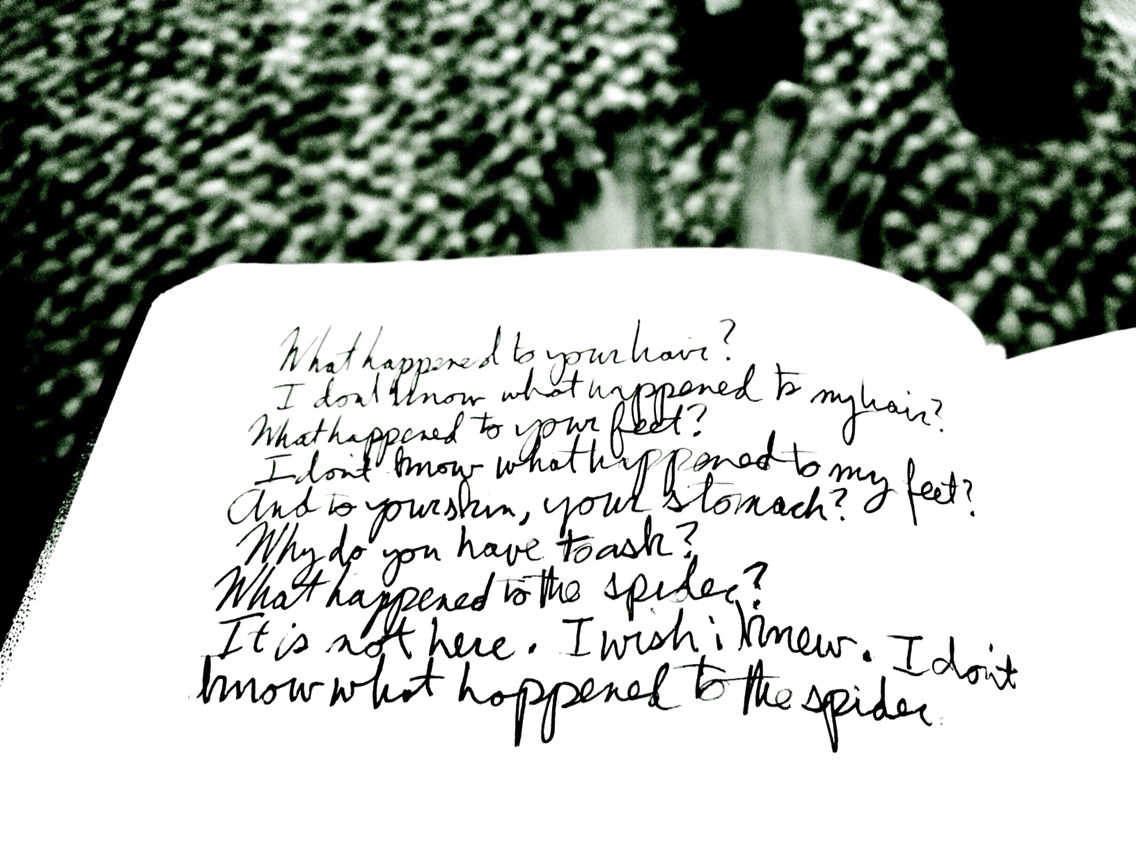 What happened to your hair?
I dont know what happened to my hair?
What happened to your feet?
I don't know what happened to my feet?
And to your skin, your stomach?
Why do you have to ask?
What happened to the spider?
It is not here. I wish i knew. I don't
know what happened to the spider.